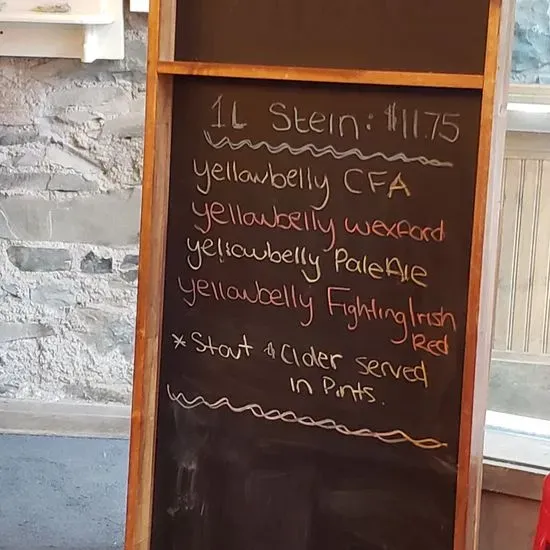 1L Stein: $11.75
yellowbelly CFA
yellowbelly wexford
yellowbelly Pale Ale
yellowbelly Fighting Irish
Red
* Stout & Cider served
in Pints.